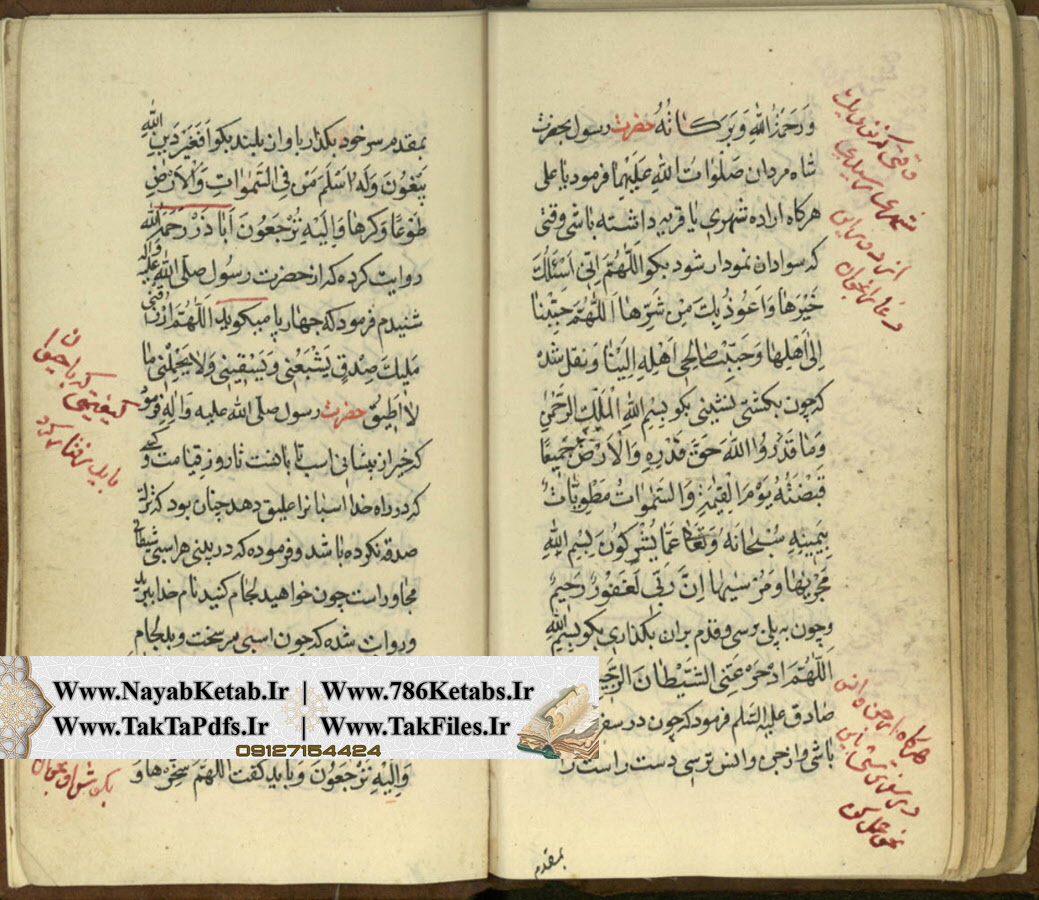 وَرَحْمَةُ اللهِ وَبَرَكَاتُهُ حضرت رسول بحضرت
شاه مردان صَلَوٰاتُ اللهِ عَلَيْهِمَا فرمود يا على
هركاه اراده شهرى يا قريه داشته باشى وقتى
كه سوادان نمودار شود بكو اَللّٰهُمَّ اِنّى اَسْئَلُكَ
خَيْرَهٰا وَاَعُوذُ بِكَ مِنْ شَرِّهٰا اَللّٰهُمَّ حَبِّبْنٰا
اِلىٰ اَهْلِهٰا وَحَبِّبْ صٰالِحى اَهْلِهِ اِلَيْنٰا ونقل شده
كه چون بكشتى نشينى بكو بِسْمِ اللهِ الْمَلِكِ الرَّحْمٰنِ
وَمٰا قَدَرُوا اللهَ حَقَّ قَدْرِهِ وَالْاَرْضُ جَمِيعًا
قَبْضَتُهُ يَوْمَ الْقِيٰمَةِ وَالسَّمٰوٰاتُ مَطْوِيّٰاتٌ
بِيَمِينِهِ سُبْحٰانَهُ وَتَعٰالىٰ عَمّٰا يُشْرِكُونَ بِسْمِ اللهِ
مَجْرٰيهٰا وَمُرْسٰيهٰا اِنَّ رَبّى لَغَفُورٌ رَحِيمٌ
وچون به پلى رسى وقدم بران بكذارى بكو بِسْمِ اللهِ
اَللّٰهُمَّ ادْحَرْ عَنِّى الشَّيْطٰانَ الرَّجِيمَ
صادق عليه السلم فرمود كه چون در سفر
باشى واز جن وانس ترسى دست راست را
بمقدم
وقتى كه نزديك
شهرى رسيدى
هركاه از جن و انس
بمقدم سر خود بكذار با واز بلند بكو اَفَغَيْرَ دِينِ اللهِ
يَبْغُونَ وَلَهُ اَسْلَمَ مَنْ فِى السَّمٰوٰاتِ وَالْاَرْضِ
طَوْعًا وَكَرْهًا وَاِلَيْهِ تُرْجَعُونَ اَبٰاذَرْ رَحِمَهُ اللهُ
روايت كرده كه از حضرت رسول صلّى الله عليه واله
شنيدم فرمود كه چهارپا ميكويد اَللّٰهُمَّ ارْزُقْنى
مَلِيكَ صِدْقٍ يَشْبَعُنى وَيَسْقِينى وَلٰا يَحْمِلُنى مٰا
لٰا اُطِيقُ حضرت رسول صلّى الله عليه وَالِهِ فرمود
كه خير از پيشانى اسب تا باهست تا روز قيامت وكسى
كه در راه خدا اسبانرا عليق دهد چنان بود كه ترك
صدقه نكرده باشد وفرموده كه در بينى هر اسبى شيطان
مجاور است چون خواهيد لجام كنيد نام خدا ببريد
وروايت شده كه چون اسبى سر سخت وبدلجام
وَاِلَيْهِ تُرْجَعُونَ وبايد كفت اَللّٰهُمَّ سَخِّرْهٰا وَ
كه با حيوان
بايد رفتار كرد
Www.NayabKetab.Ir | Www.786Ketabs.Ir
Www.TakTaPdfs.Ir | Www.TakFiles.Ir
09127154424